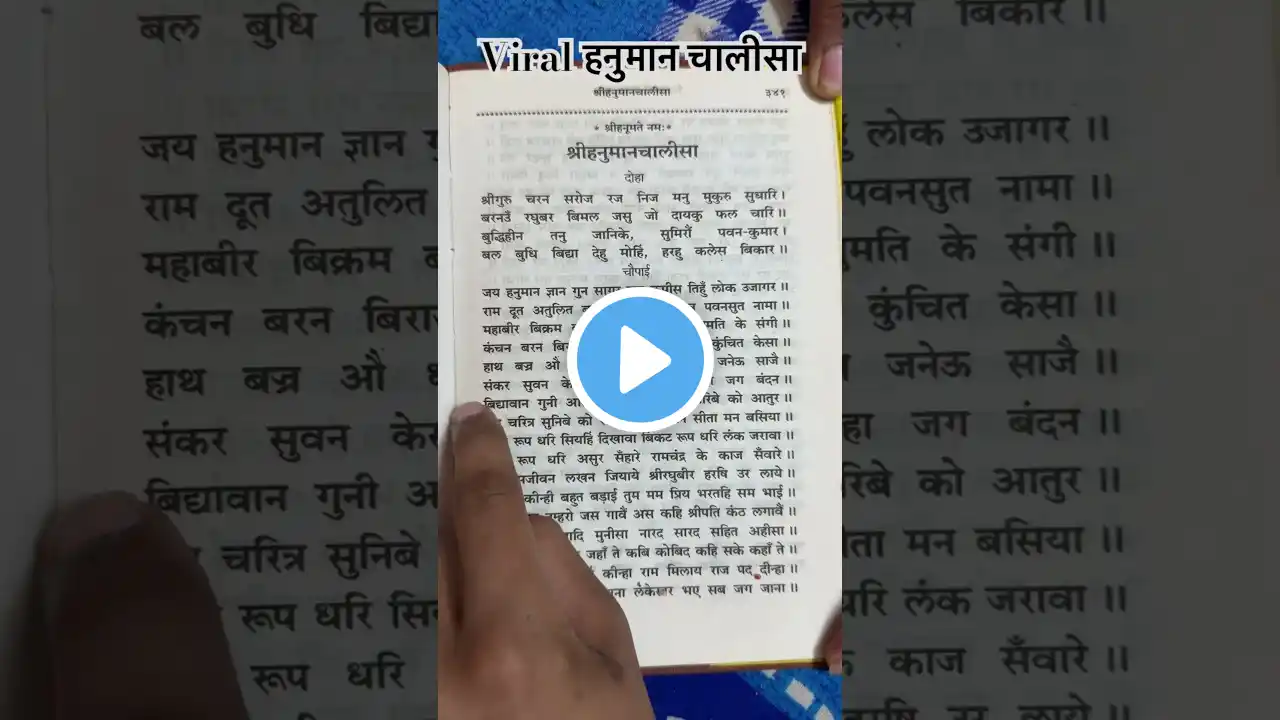 Viral हनुमान चालीसा
श्रीहनुमानचालीसा ३४१
* श्रीहनूमते नमः *
श्रीहनुमानचालीसा
दोहा
श्रीगुरु चरन सरोज रज निज मनु मुकुरु सुधारि।
बरनउँ रघुबर बिमल जसु जो दायकु फल चारि॥
बुद्धिहीन तनु जानिके, सुमिरौं पवन-कुमार।
बल बुधि बिद्या देहु मोहिं, हरहु कलेस बिकार॥
चौपाई
जय हनुमान ज्ञान गुन सागर तिहुँ लोक उजागर॥
राम दूत अतुलित पवनसुत नामा॥
महाबीर बिक्रम के संगी॥
कंचन बरन कुंचित केसा॥
हाथ बज्र औ जनेऊ साजै॥
संकर सुवन जग बंदन॥
बिद्यावान गुनी को आतुर॥
चरित्र सुनिबे को सीता मन बसिया॥
रूप धरि सियहिं दिखावा बिकट रूप धरि लंक जरावा॥
रूप धरि असुर सँहारे रामचंद्र के काज सँवारे॥
लखन जियाये श्रीरघुबीर हरषि उर लाये॥
कीन्ही बहुत बड़ाई तुम मम प्रिय भरतहि सम भाई॥
जस गावैं अस कहि श्रीपति कंठ लगावैं॥
मुनीसा नारद सारद सहित अहीसा॥
जहाँ ते कबि कोबिद कहि सके कहाँ ते॥
कीन्हा राम मिलाय राज पद दीन्हा॥
लंकेस्वर भए सब जग जाना॥